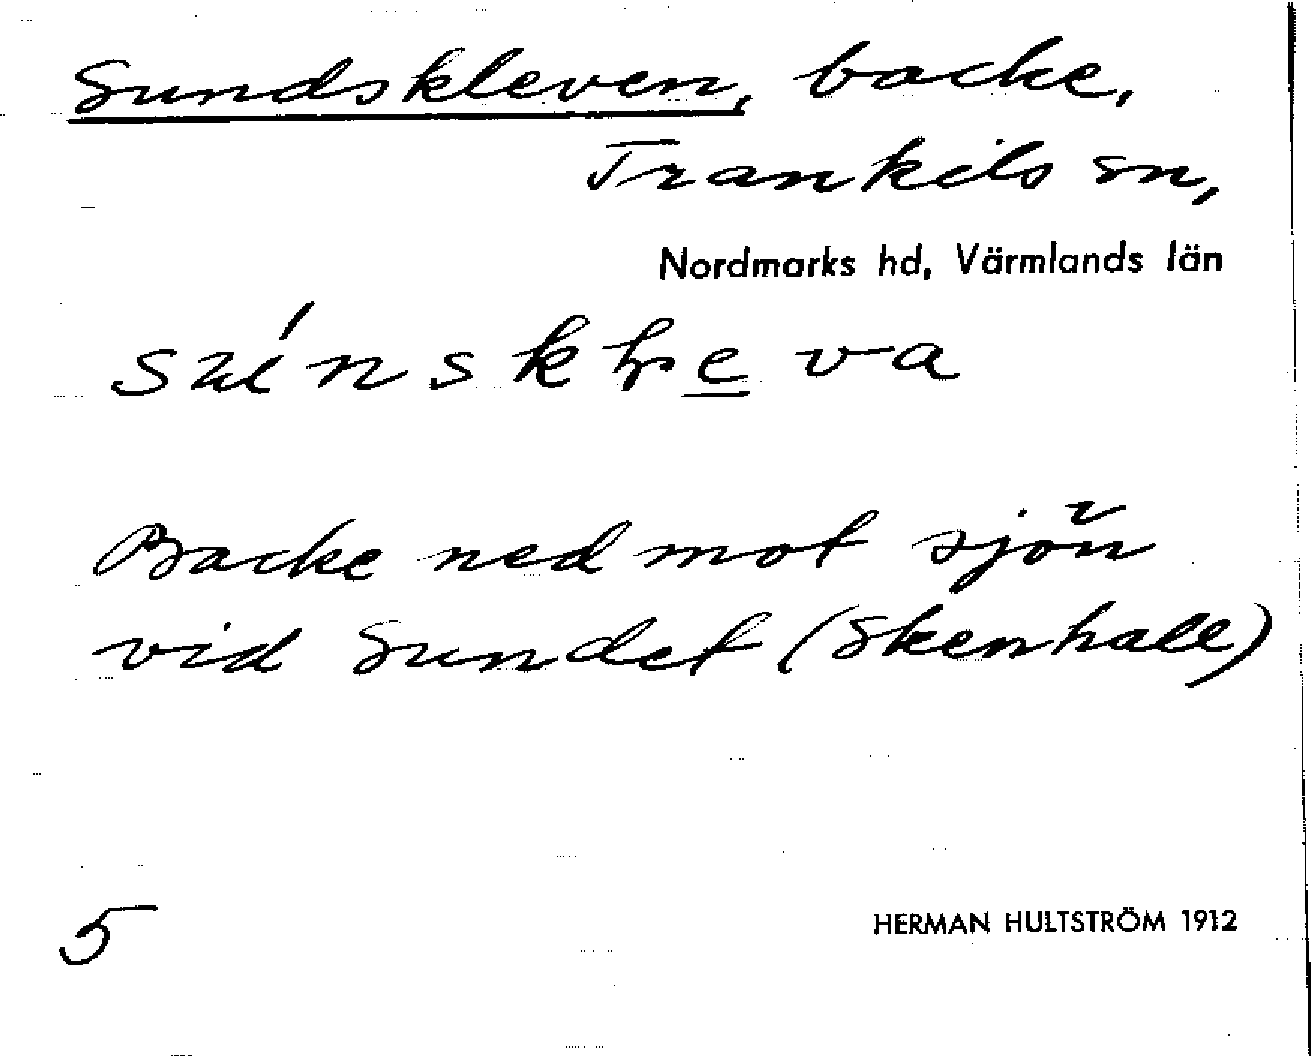 Sundskleven, backe,
Trankils sn,
Nordmarks hd, Värmlands län
Backe ned mot sjön
vid Sundet (Skenhall)
5
HERMAN HULTSTRÖM 1912